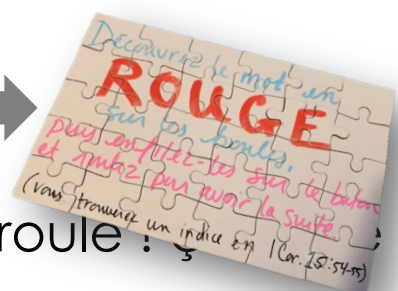 Découvrez le mot en
ROUGE
sur vos boules,
puis enfilez-les sur le bâton
et pour avoir la suite.
(vous trouverez un indice en 1 Cor. 15:54-55)
roule !